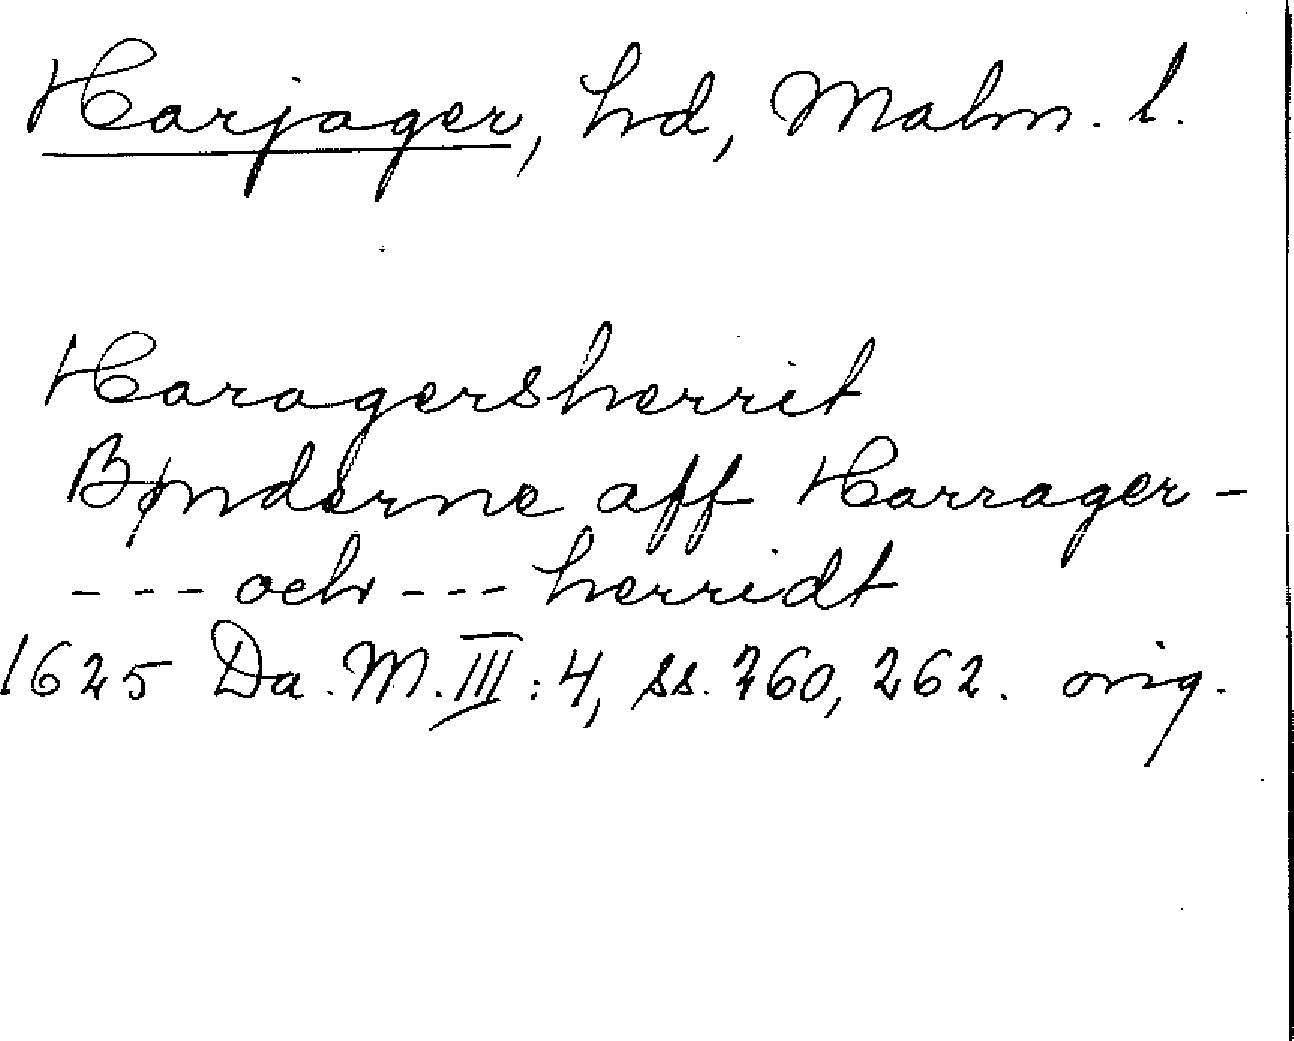 Harjager, hd, Malm. l.
Haragersherrit
Bønderne aff Harrager-
--- och --- herridt
1625 Da. M. III: 4, ss. 260, 262. orig.